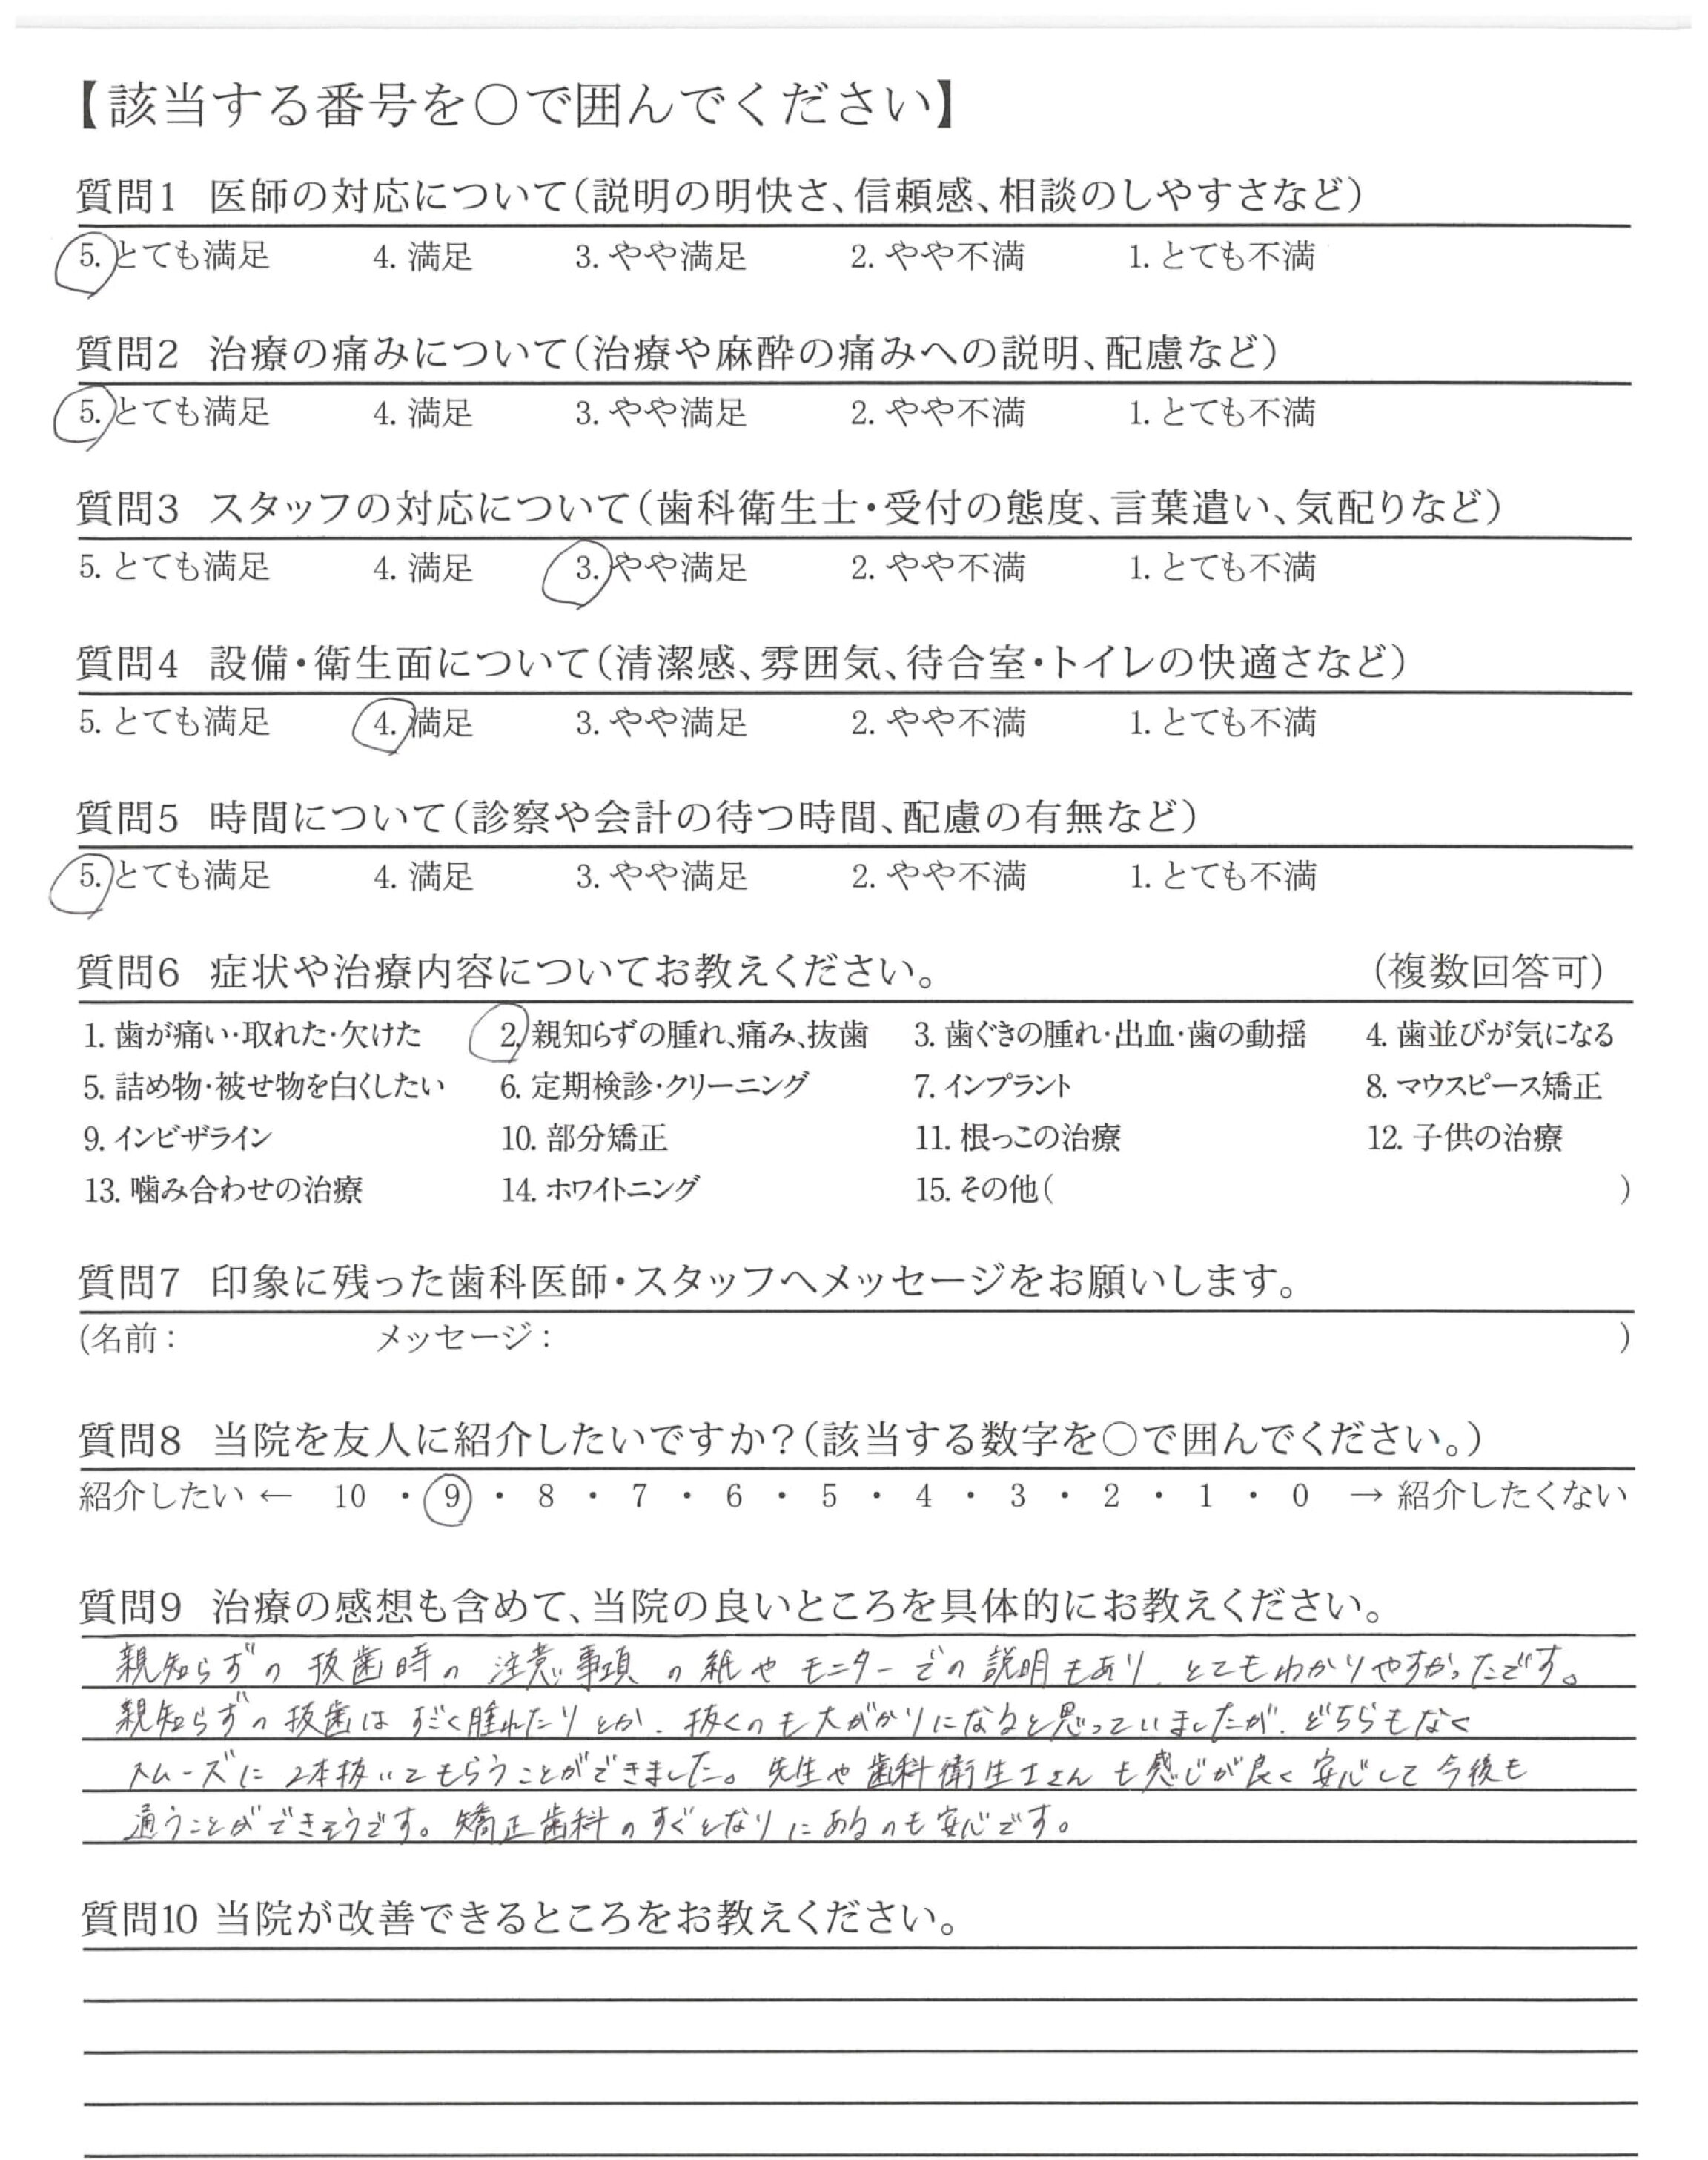 【該当する番号を○で囲んでください】
質問1 医師の対応について(説明の明快さ、信頼感、相談のしやすさなど)
5. とても満足 4. 満足 3. やや満足 2. やや不満 1. とても不満
質問2 治療の痛みについて(治療や麻酔の痛みへの説明、配慮など)
5. とても満足 4. 満足 3. やや満足 2. やや不満 1. とても不満
質問3 スタッフの対応について(歯科衛生士・受付の態度、言葉遣い、気配りなど)
5. とても満足 4. 満足 3. やや満足 2. やや不満 1. とても不満
質問4 設備・衛生面について(清潔感、雰囲気、待合室・トイレの快適さなど)
5. とても満足 4. 満足 3. やや満足 2. やや不満 1. とても不満
質問5 時間について(診察や会計の待つ時間、配慮の有無など)
5. とても満足 4. 満足 3. やや満足 2. やや不満 1. とても不満
質問6 症状や治療内容についてお教えください。 (複数回答可)
1. 歯が痛い・取れた・欠けた 2. 親知らずの腫れ、痛み、抜歯 3. 歯ぐきの腫れ・出血・歯の動揺 4. 歯並びが気になる
5. 詰め物・被せ物を白くしたい 6. 定期検診・クリーニング 7. インプラント 8. マウスピース矯正
9. インビザライン 10. 部分矯正 11. 根っこの治療 12. 子供の治療
13. 噛み合わせの治療 14. ホワイトニング 15. その他( )
質問7 印象に残った歯科医師・スタッフへメッセージをお願いします。
(名前: メッセージ: )
質問8 当院を友人に紹介したいですか?(該当する数字を○で囲んでください。)
紹介したい ← 10 ・ 9 ・ 8 ・ 7 ・ 6 ・ 5 ・ 4 ・ 3 ・ 2 ・ 1 ・ 0 → 紹介したくない
質問9 治療の感想も含めて、当院の良いところを具体的にお教えください。
親知らずの抜歯時の注意事項の紙やモニターでの説明もあり、とてもわかりやすかったです。
親知らずの抜歯はすごく腫れたりとか、抜くのも大がかりになると思っていましたが、どちらもなく
スムーズに2本抜いてもらうことができました。先生や歯科衛生士さんも感じが良く安心して今後も
通うことができそうです。矯正歯科のすぐとなりにあるのも安心です。
質問10 当院が改善できるところをお教えください。